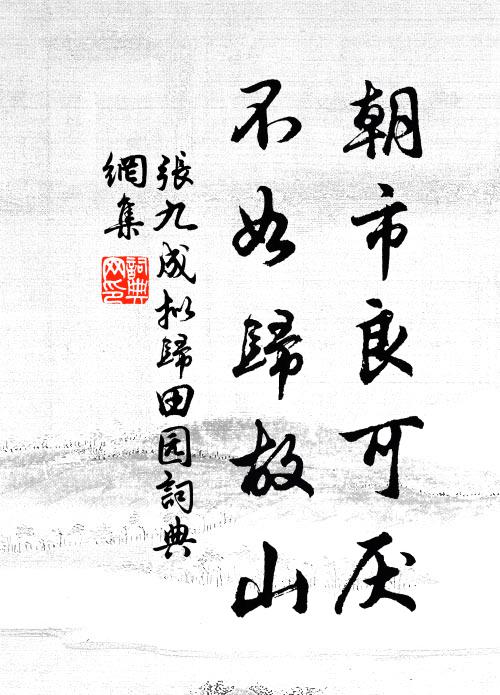 朝市良可厌
不如歸故山
張九成拟歸田园詞典
網集
詞典
网印